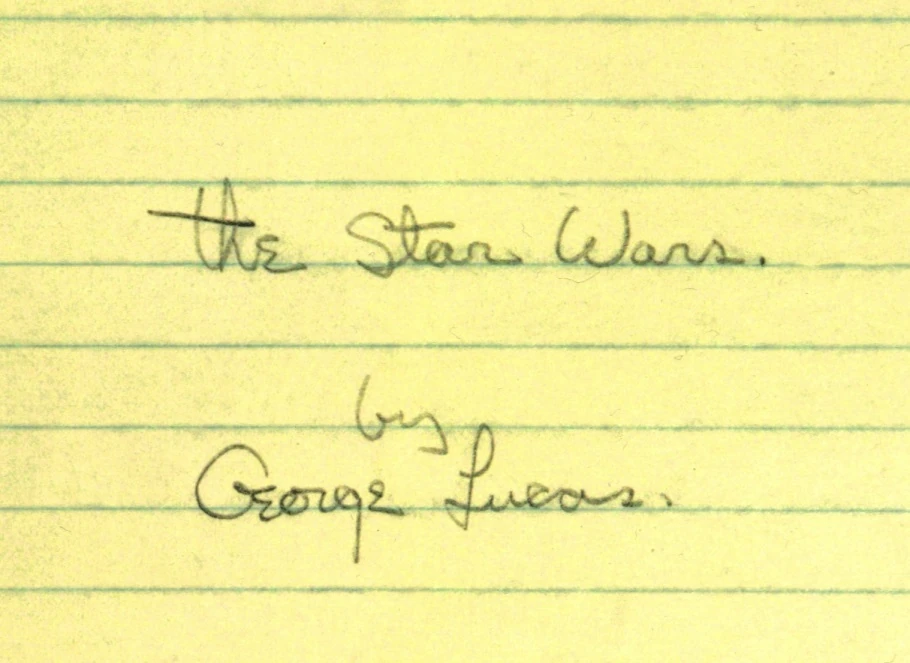 the Star Wars.
by
George Lucas.